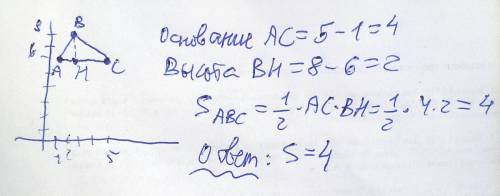 8
6
B
A
H
C
1 2
5
Основание AC = 5 - 1 = 4
Высота BH = 8 - 6 = 2
S_ABC = 1/2 · AC · BH = 1/2 · 4 · 2 = 4
Ответ: S = 4